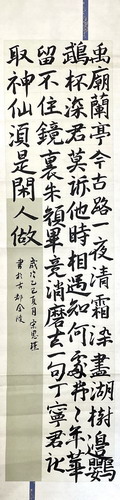 禹廟蘭亭今古路一夜清霜染盡湖樹邊鸚
鵡杯深君莫訴他時相遇知何處冉〻年華
留不住鏡裏朱顏畢竟消磨去一句丁寧君記
取神仙須是閑人做
歲次乙巳夏月宋
書於古都金陵